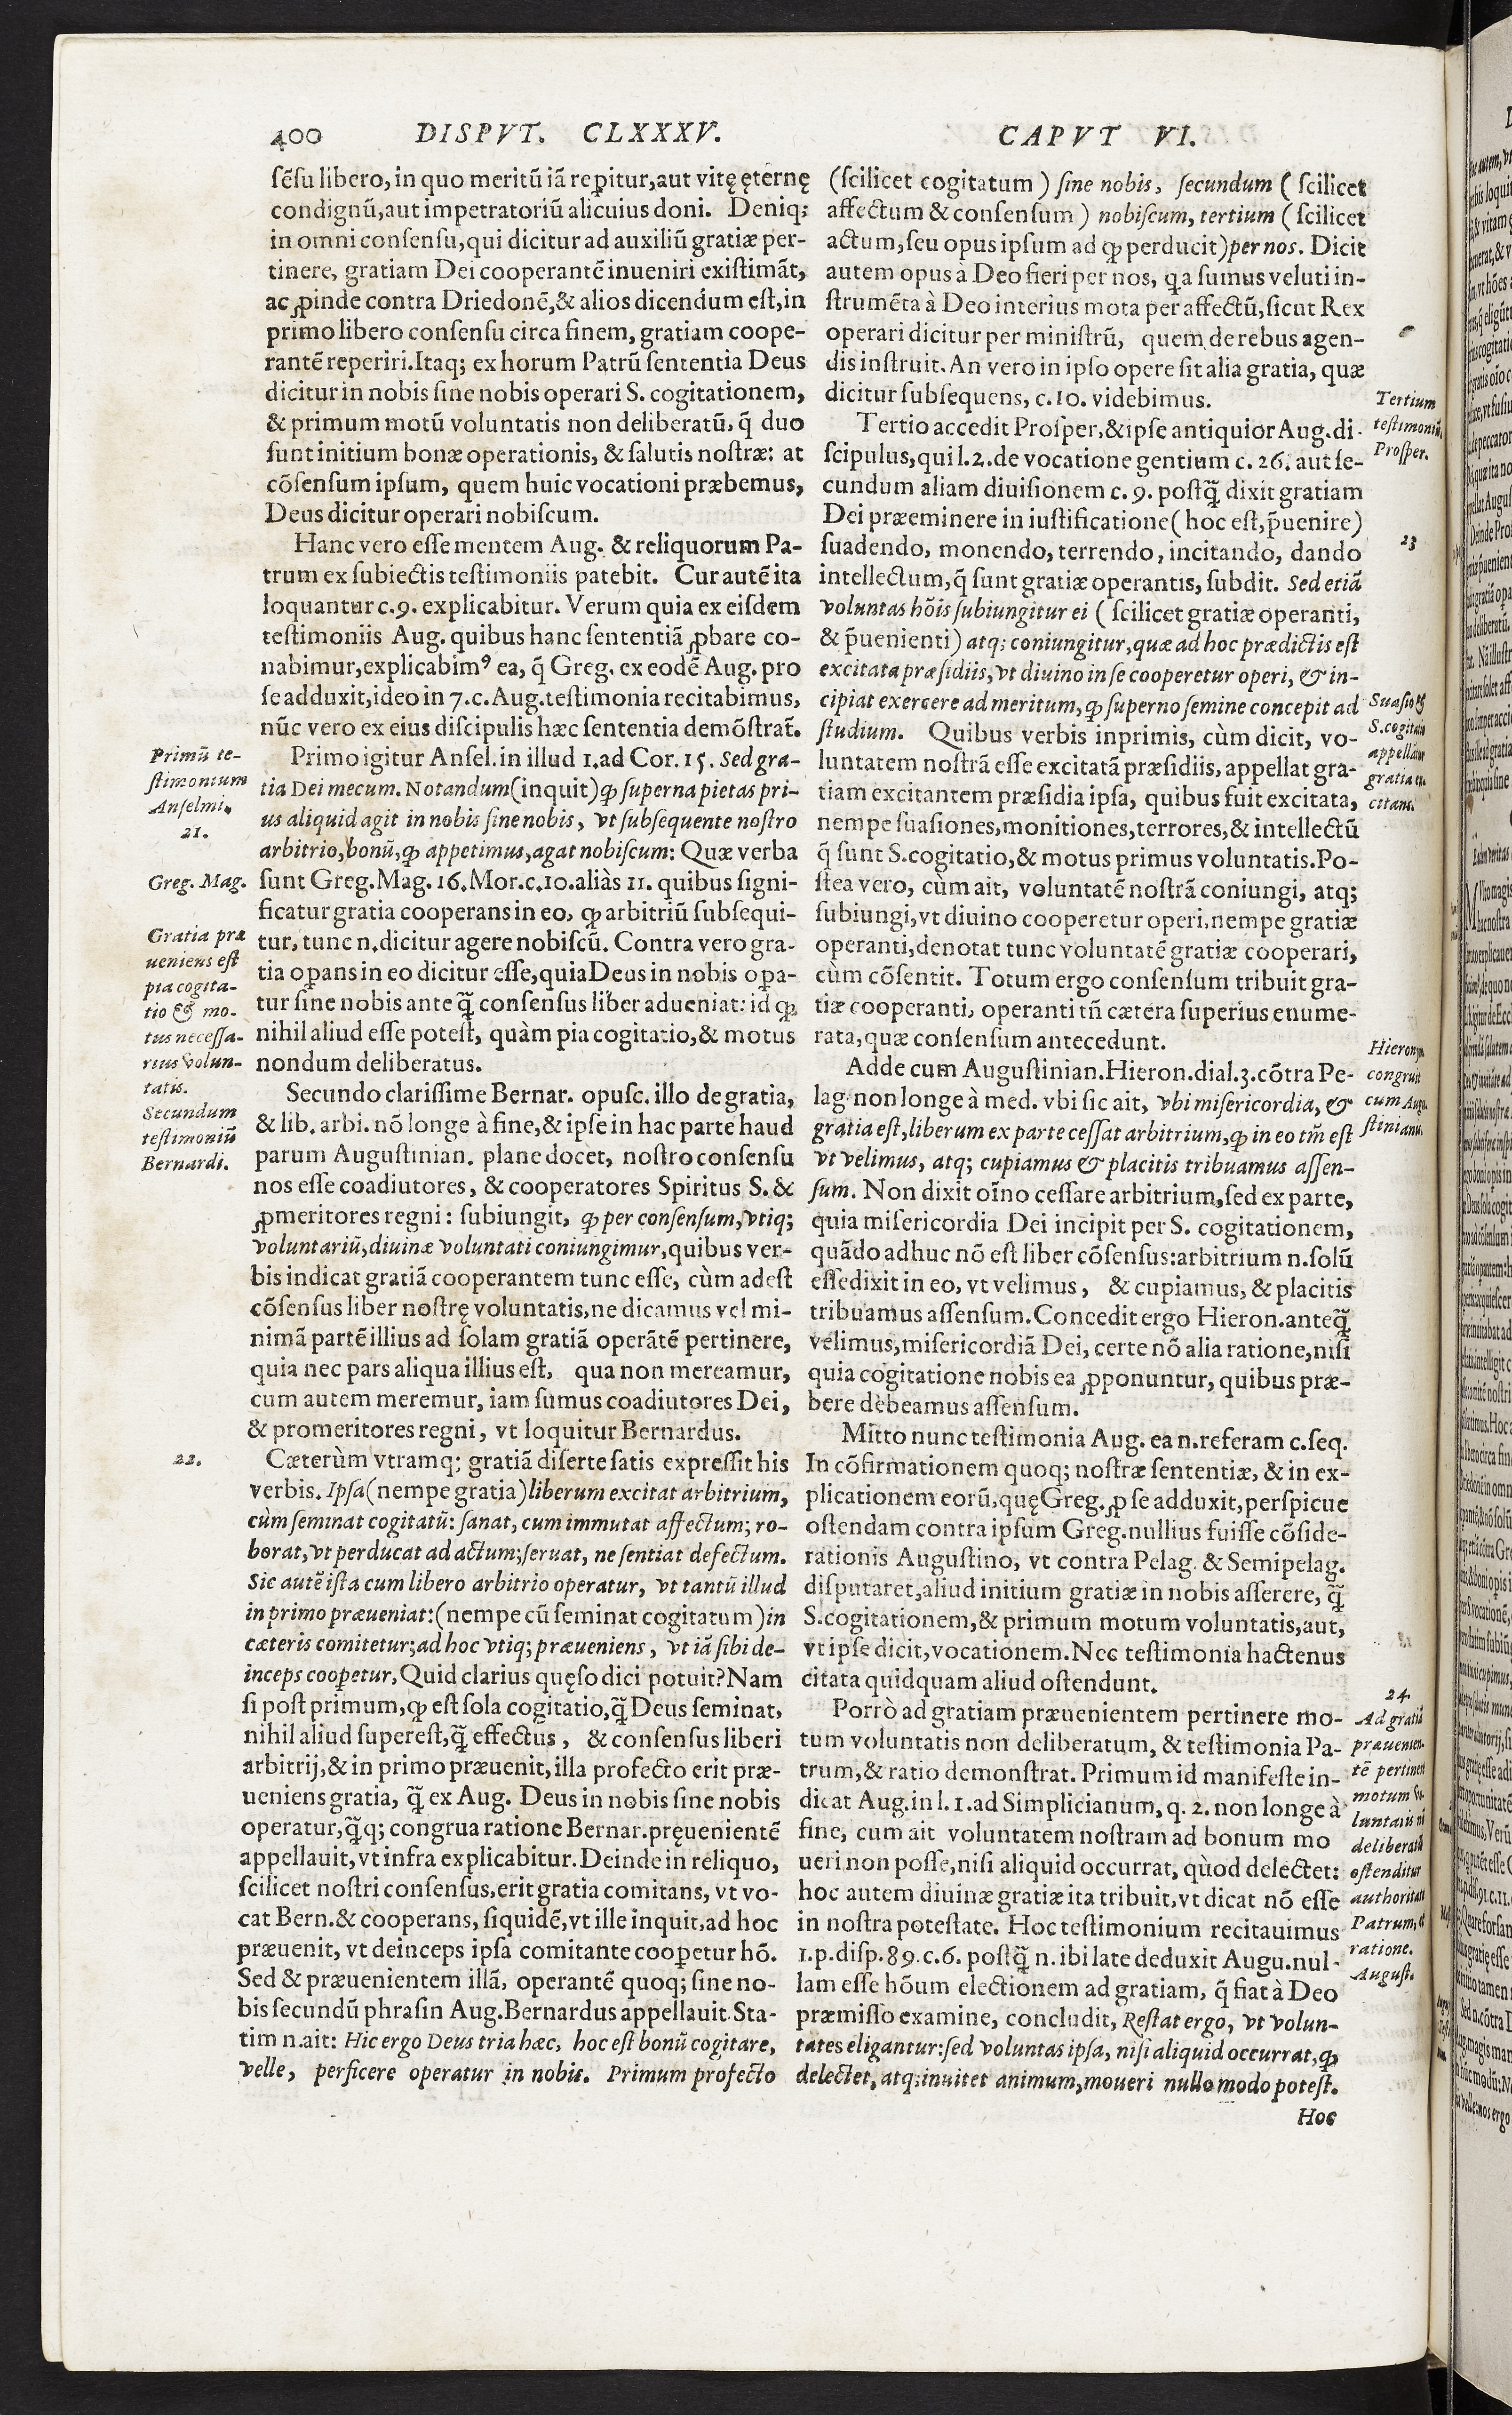 400 DISPVT. CLXXXV. CAPVT VI.
ſẽſu libero, in quo meritũ iã reꝑitur, aut vitę ęternę
condignũ, aut impetratoriũ alicuius doni. Deniq;
in omni conſenſu, qui dicitur ad auxiliũ gratiæ per-
tinere, gratiam Dei cooperantẽ inueniri exiſtimãt,
ac ꝓinde contra Driedonẽ, & alios dicendum eſt, in
primo libero conſenſu circa finem, gratiam coope-
rantẽ reperiri. Itaq; ex horum Patrũ ſententia Deus
dicitur in nobis ſine nobis operari S. cogitationem,
& primum motũ voluntatis non deliberatũ, q̃ duo
ſunt initium bonæ operationis, & ſalutis noſtræ: at
cõſenſum ipſum, quem huic vocationi præbemus,
Deus dicitur operari nobiſcum.
Hanc vero eſſe mentem Aug. & reliquorum Pa-
trum ex ſubiectis teſtimoniis patebit. Cur autẽ ita
loquantur c. 9. explicabitur. Verum quia ex eiſdem
teſtimoniis Aug. quibus hanc ſententiã ꝓbare co-
nabimur, explicabimꝰ ea, q̃ Greg. ex eodẽ Aug. pro
ſe adduxit, ideo in 7. c. Aug. teſtimonia recitabimus,
nũc vero ex eius diſcipulis hæc ſententia demõſtrat̃.
Primũ te-
ſtimonium
Anſelmi.
21.
Primo igitur Anſel. in illud 1. ad Cor. 15. Sed gra-
tia Dei mecum. Notandum (inquit) ꝙ ſuperna pietas pri-
us aliquid agit in nobis ſine nobis, vt ſubſequente noſtro
arbitrio, bonũ, ꝙ appetimus, agat nobiſcum: Quæ verba
Greg. Mag.
ſunt Greg. Mag. 16. Mor. c. 10. aliàs 11. quibus ſigni-
ficatur gratia cooperans in eo, ꝙ arbitriũ ſubſequi-
Gratia præ
ueniens eſt
pia cogita-
tio & mo-
tus neceſſa-
rius volun-
tatis.
tur, tunc n. dicitur agere nobiſcũ. Contra vero gra-
tia oꝑans in eo dicitur eſſe, quia Deus in nobis oꝑa-
tur ſine nobis ante q̃ conſenſus liber adueniat: id ꝙ
nihil aliud eſſe poteſt, quàm pia cogitatio, & motus
nondum deliberatus.
Secundum
teſtimoniũ
Bernardi.
Secundo clariſſime Bernar. opuſc. illo de gratia,
& lib. arbi. nõ longe à fine, & ipſe in hac parte haud
parum Auguſtinian. plane docet, noſtro conſenſu
nos eſſe coadiutores, & cooperatores Spiritus S. &
ꝓmeritores regni: ſubiungit, ꝙ per conſenſum, vtiq;
voluntariũ, diuinæ voluntati coniungimur, quibus ver-
bis indicat gratiã cooperantem tunc eſſe, cùm adeſt
cõſenſus liber noſtrę voluntatis, ne dicamus vel mi-
nimã partẽ illius ad ſolam gratiã operãtẽ pertinere,
quia nec pars aliqua illius eſt, qua non mereamur,
cum autem meremur, iam ſumus coadiutores Dei,
& promeritores regni, vt loquitur Bernardus.
22.
Cæterùm vtramq; gratiã diſerte ſatis expreſſit his
verbis. Ipſa (nempe gratia) liberum excitat arbitrium,
cùm ſeminat cogitatũ: ſanat, cum immutat affectum; ro-
borat, vt perducat ad actum; ſeruat, ne ſentiat defectum.
Sic autẽ iſta cum libero arbitrio operatur, vt tantũ illud
in primo præueniat: (nempe cũ ſeminat cogitatum) in
cæteris comitetur; ad hoc vtiq; præueniens, vt iã ſibi de-
inceps cooꝑetur. Quid clarius quęſo dici potuit? Nam
ſi poſt primum, ꝙ eſt ſola cogitatio, q̃ Deus ſeminat,
nihil aliud ſupereſt, q̃ effectus, & conſenſus liberi
arbitrij, & in primo præuenit, illa profecto erit præ-
ueniens gratia, q̃ ex Aug. Deus in nobis ſine nobis
operatur, q̃q; congrua ratione Bernar. pręuenientẽ
appellauit, vt infra explicabitur. Deinde in reliquo,
ſcilicet noſtri conſenſus, erit gratia comitans, vt vo-
cat Bern. & cooperans, ſiquidẽ, vt ille inquit, ad hoc
præuenit, vt deinceps ipſa comitante cooꝑetur hõ.
Sed & præuenientem illã, operantẽ quoq; ſine no-
bis ſecundũ phraſin Aug. Bernardus appellauit. Sta-
tim n. ait: Hic ergo Deus tria hæc, hoc eſt bonũ cogitare,
velle, perficere operatur in nobis. Primum profecto
(ſcilicet cogitatum) ſine nobis, ſecundum (ſcilicet
affectum & conſenſum) nobiſcum, tertium (ſcilicet
actum, ſeu opus ipſum ad ꝙ perducit) per nos. Dicit
autem opus à Deo fieri per nos, q̃a ſumus veluti in-
ſtrumẽta à Deo interius mota per affectũ, ſicut Rex
operari dicitur per miniſtrũ, quem de rebus agen-
dis inſtruit. An vero in ipſo opere ſit alia gratia, quæ
dicitur ſubſequens, c. 10. videbimus.
Tertium
teſtimoniũ
Proſper.
Tertio accedit Proſper, & ipſe antiquior Aug. di-
ſcipulus, qui l. 2. de vocatione gentium c. 26. aut ſe-
cundum aliam diuiſionem c. 9. poſtq̃ dixit gratiam
Dei præeminere in iuſtificatione (hoc eſt, p̃uenire)
23
ſuadendo, monendo, terrendo, incitando, dando
intellectum, q̃ ſunt gratiæ operantis, ſubdit. Sed etiã
voluntas hõis ſubiungitur ei (ſcilicet gratiæ operanti,
& p̃uenienti) atq; coniungitur, quæ ad hoc prædictis eſt
excitata præſidiis, vt diuino in ſe cooperetur operi, & in-
cipiat exercere ad meritum, ꝙ ſuperno ſemine concepit ad
ſtudium. Quibus verbis inprimis, cùm dicit, vo-
luntatem noſtrã eſſe excitatã præſidiis, appellat gra-
tiam excitantem præſidia ipſa, quibus fuit excitata,
nempe ſuaſiones, monitiones, terrores, & intellectũ
q̃ ſunt S. cogitatio, & motus primus voluntatis. Po-
ſtea vero, cùm ait, voluntatẽ noſtrã coniungi, atq;
ſubiungi, vt diuino cooperetur operi, nempe gratiæ
operanti, denotat tunc voluntatẽ gratiæ cooperari,
cùm cõſentit. Totum ergo conſenſum tribuit gra-
tiæ cooperanti, operanti tñ cætera ſuperius enume-
rata, quæ conſenſum antecedunt.
Hieronym.
congruit
cum Augu-
ſtinianis.
Adde cum Auguſtinian. Hieron. dial. 3. cõtra Pe-
lag. non longe à med. vbi ſic ait, vbi miſericordia, &
gratia eſt, liberum ex parte ceſſat arbitrium, ꝙ in eo tm̃ eſt
vt velimus, atq; cupiamus & placitis tribuamus aſſen-
ſum. Non dixit oĩno ceſſare arbitrium, ſed ex parte,
quia miſericordia Dei incipit per S. cogitationem,
quãdo adhuc nõ eſt liber cõſenſus: arbitrium n. ſolũ
eſſe dixit in eo, vt velimus, & cupiamus, & placitis
tribuamus aſſenſum. Concedit ergo Hieron. anteq̃
velimus, miſericordiã Dei, certe nõ alia ratione, niſi
quia cogitatione nobis ea ꝓponuntur, quibus præ-
bere debeamus aſſenſum.
Mitto nunc teſtimonia Aug. ea n. referam c. ſeq.
In cõfirmationem quoq; noſtræ ſententiæ, & in ex-
plicationem eorũ, quę Greg. ꝓ ſe adduxit, perſpicue
oſtendam contra ipſum Greg. nullius fuiſſe cõſide-
rationis Auguſtino, vt contra Pelag. & Semipelag.
diſputaret, aliud initium gratiæ in nobis aſſerere, q̃
S. cogitationem, & primum motum voluntatis, aut,
vt ipſe dicit, vocationem. Nec teſtimonia hactenus
citata quidquam aliud oſtendunt.
24.
Porrò ad gratiam præuenientem pertinere mo-
tum voluntatis non deliberatum, & teſtimonia Pa-
trum, & ratio demonſtrat. Primum id manifeſte in-
dicat Aug. in l. 1. ad Simplicianum, q. 2. non longe à
fine, cum ait voluntatem noſtram ad bonum mo
ueri non poſſe, niſi aliquid occurrat, quòd delectet:
hoc autem diuinæ gratiæ ita tribuit, vt dicat nõ eſſe
in noſtra poteſtate. Hoc teſtimonium recitauimus
1. p. diſp. 89. c. 6. poſtq̃ n. ibi late deduxit Augu. nul-
lam eſſe hõum electionem ad gratiam, q̃ fiat à Deo
præmiſſo examine, concludit, Reſtat ergo, vt volun-
tates eligantur: ſed voluntas ipſa, niſi aliquid occurrat, ꝙ
delectet, atq; inuitet animum, moueri nullo modo poteſt.
Hoc